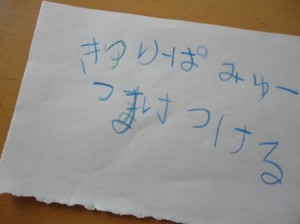 きつりーぱ みゅー
つけ つける